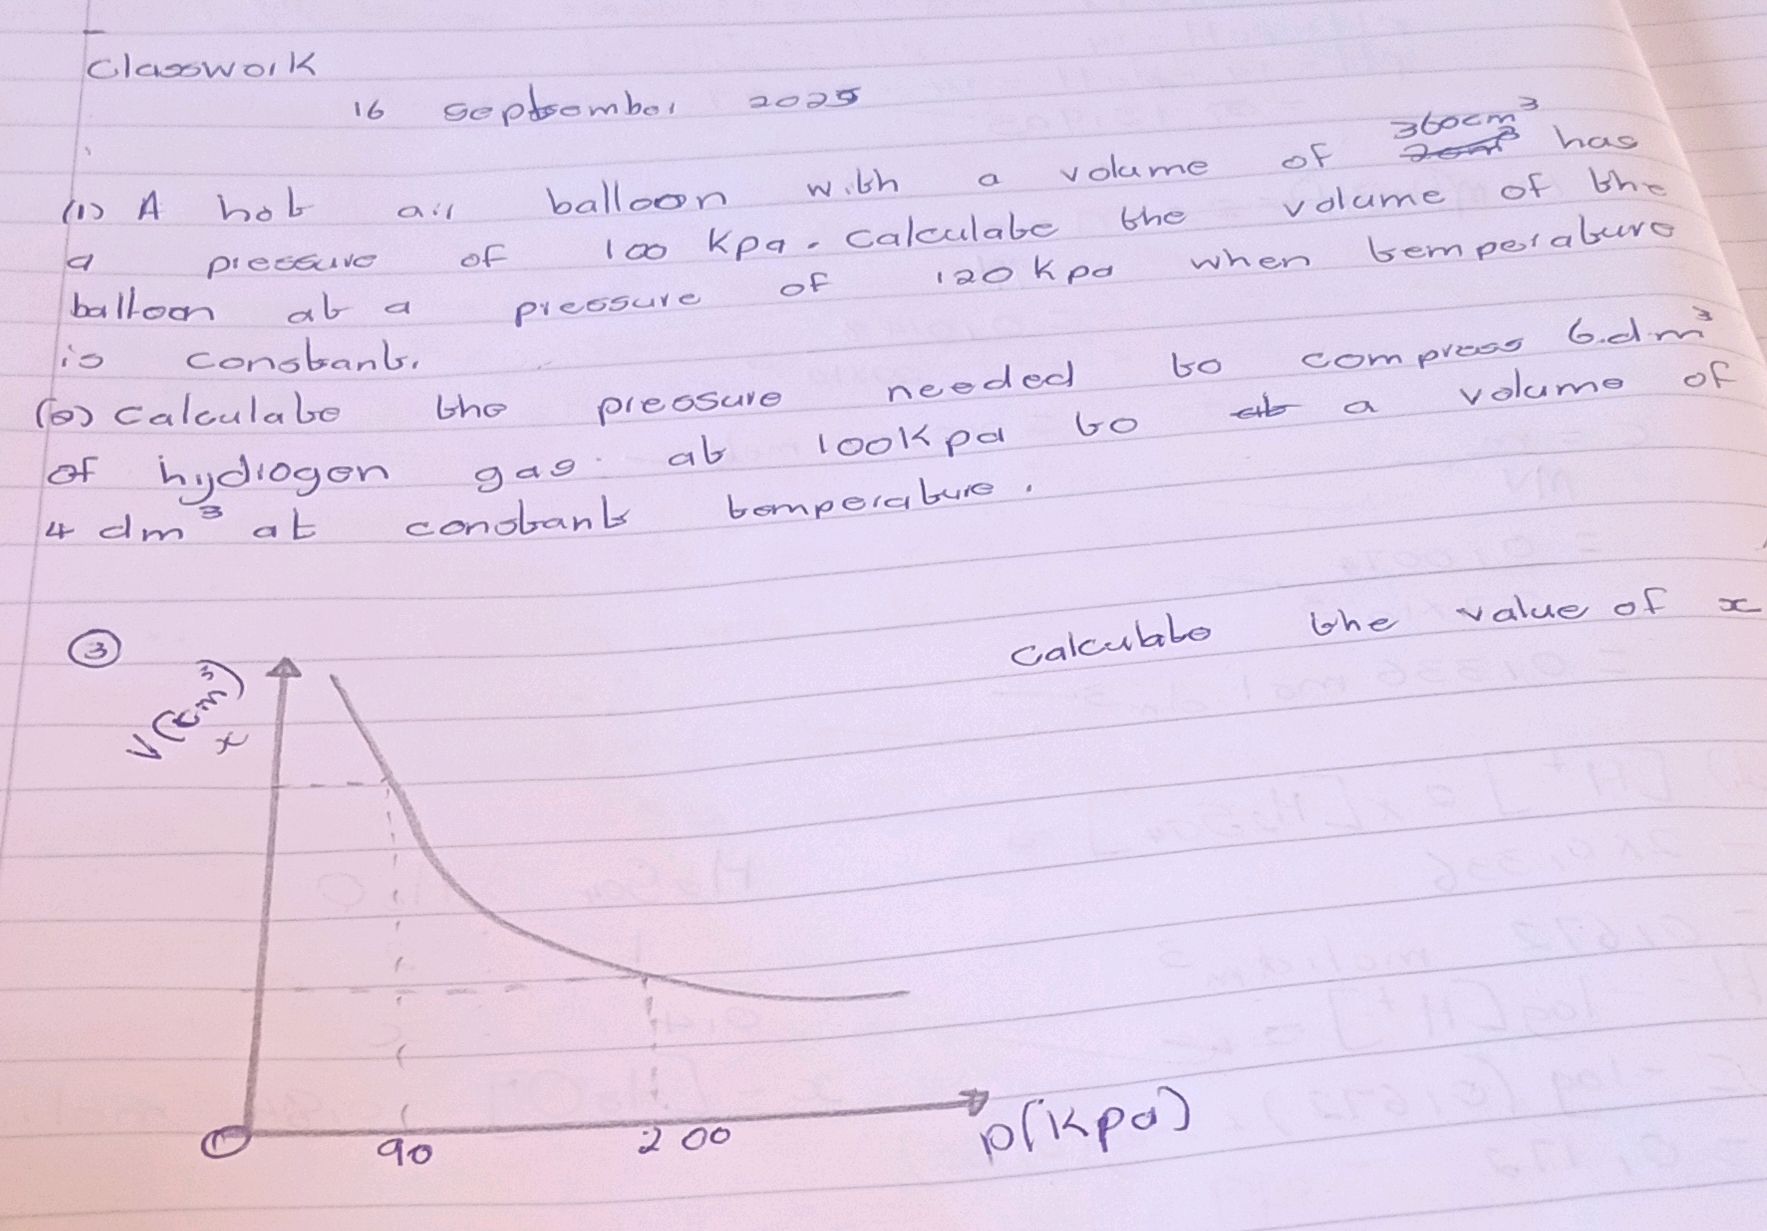 Classwork
16 september 2025
(1) A hot air balloon with a volume of 360cm³ has
a pressure of 100 kpa. Calculate the volume of the
balloon at a pressure of 120 kpa when temperature
is constant.
(2) Calculate the pressure needed to compress 6.dm³
of hydrogen gas at 100kpa to a volume of
4 dm³ at constant temperature.
③ Calculate the value of x
V(cm³)
x
90 200 p(kpa)